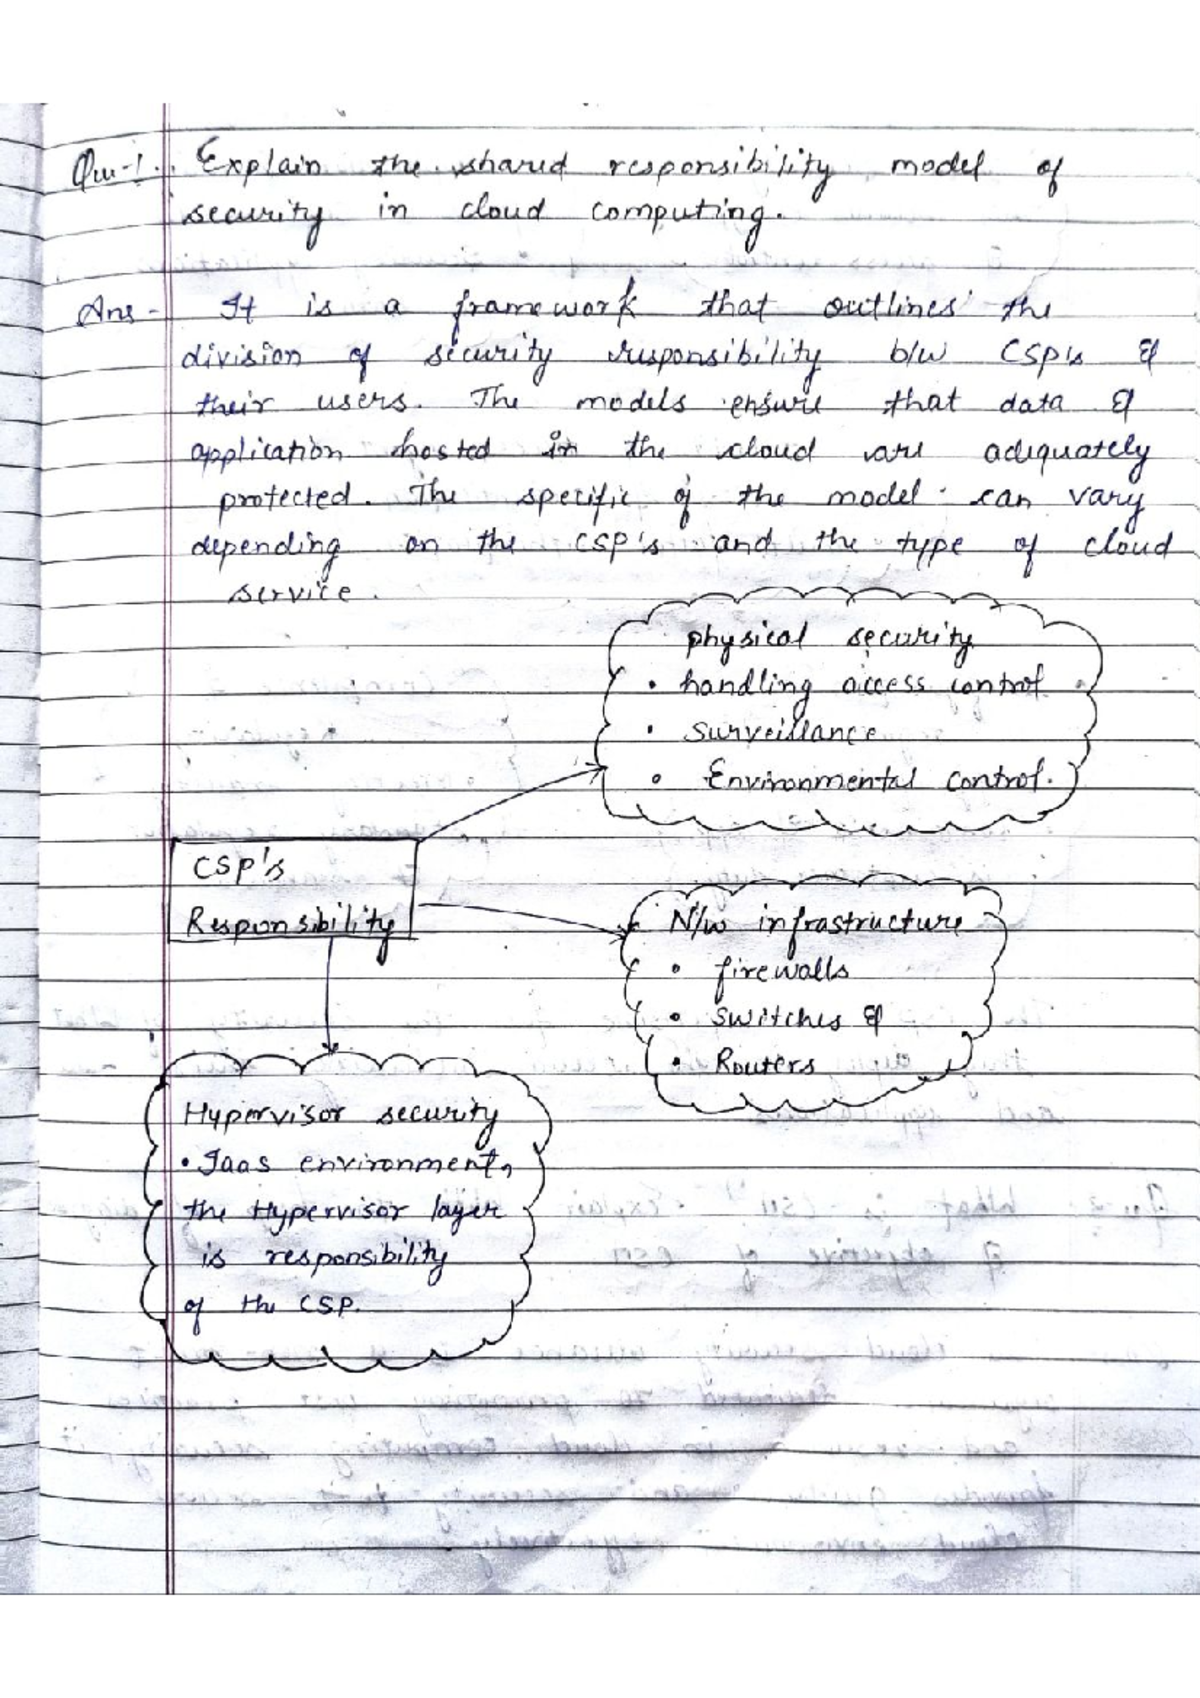 Qu-1. Explain the shared responsibility model of
security in cloud computing.
Ans - It is a framework that outlines the
division of security responsibility b/w CSP's &
their users. The models ensure that data &
application hosted in the cloud are adequately
protected. The specific of the model can vary
depending on the CSP's and the type of cloud
service.
physical security
• handling access control
• Surveillance
• Environmental control.
CSP's
Responsibility
N/w infrastructure
• firewalls
• Switches &
• Routers
Hypervisor security
• Iaas environment,
the Hypervisor layer
is responsibility
of the CSP.